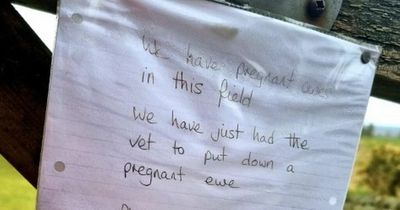 We have pregnant ewes
in this field
We have just had the
vet to put down a
pregnant ewe